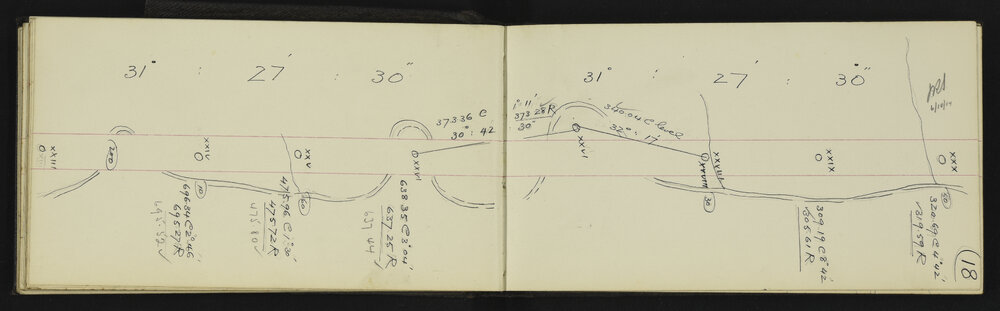 31° : 27' : 30"
373.36 C
30° : 42
XXIII
200
XXIV
10
XXV
60
XXVI
696.84 C 2° 46'
695.27 R
695.52
475.96 C 1° 30'
475.72 R
475.80
638.35 C 3° 04'
637.25 R
637 44
31° : 27' : 30"
1° 11'
373.28 R
30°
340.04 C level
32° : 17'
XXVI
XXVII
XXVIII
30
XXIX
XXX
50
309.19 C 8° 42'
305.61 R
320.69 C 4° 42'
319.59 R
18